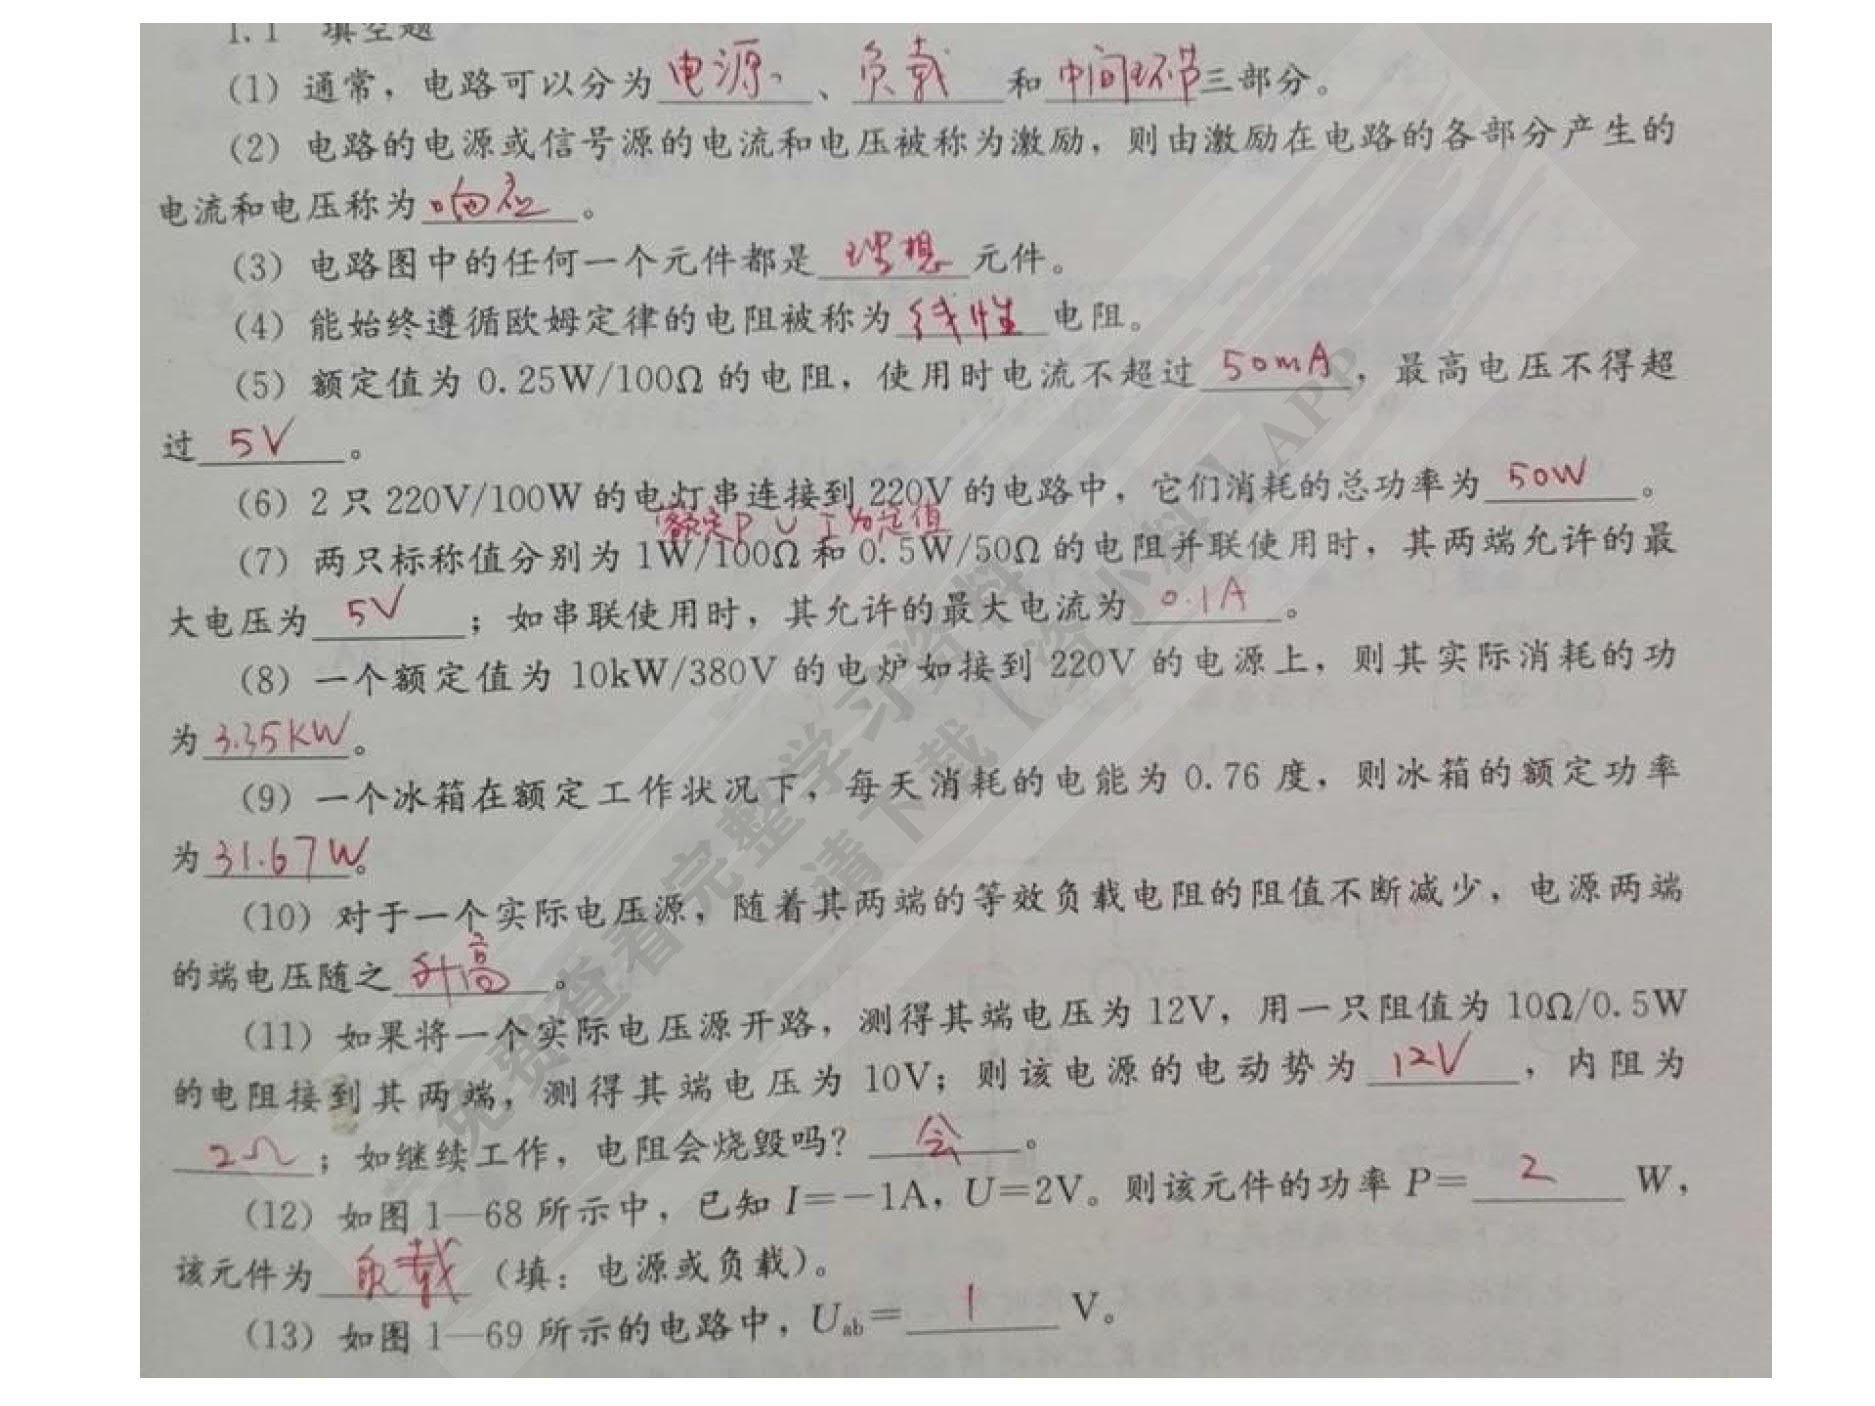 1.1 填空题
(1) 通常，电路可以分为 电源 、 负载 和 中间环节 三部分。
(2) 电路的电源或信号源的电流和电压被称为激励，则由激励在电路的各部分产生的
电流和电压称为 响应 。
(3) 电路图中的任何一个元件都是 理想 元件。
(4) 能始终遵循欧姆定律的电阻被称为 线性 电阻。
(5) 额定值为 0.25W/100Ω 的电阻，使用时电流不超过 50mA ，最高电压不得超
过 5V 。
(6) 2 只 220V/100W 的电灯串连接到 220V 的电路中，它们消耗的总功率为 50W 。
额定P U I 为定值
(7) 两只标称值分别为 1W/100Ω 和 0.5W/50Ω 的电阻并联使用时，其两端允许的最
大电压为 5V ；如串联使用时，其允许的最大电流为 0.1A 。
(8) 一个额定值为 10kW/380V 的电炉如接到 220V 的电源上，则其实际消耗的功
为 3.35KW 。
(9) 一个冰箱在额定工作状况下，每天消耗的电能为 0.76 度，则冰箱的额定功率
为 31.67W 。
(10) 对于一个实际电压源，随着其两端的等效负载电阻的阻值不断减少，电源两端
的端电压随之 升高 。
(11) 如果将一个实际电压源开路，测得其端电压为 12V，用一只阻值为 10Ω/0.5W
的电阻接到其两端，测得其端电压为 10V；则该电源的电动势为 12V ，内阻为
2Ω ；如继续工作，电阻会烧毁吗？ 会 。
(12) 如图 1—68 所示中，已知 I=-1A，U=2V。则该元件的功率 P= 2 W，
该元件为 负载 （填：电源或负载）。
(13) 如图 1—69 所示的电路中，Uab= 1 V。
免费查看完整学习资料
请下载【资小料】APP